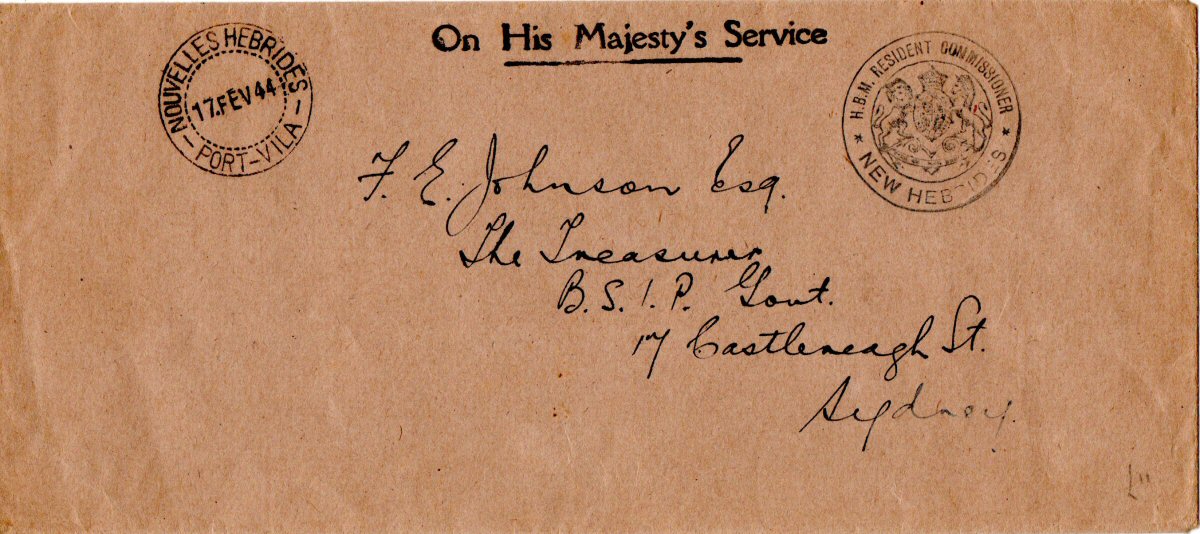 On His Majesty's Service
NOUVELLES HEBRIDES
17.FEV 44
— PORT-VILA —
H.B.M. RESIDENT COMMISSIONER
* NEW HEBRIDES *
F. E. Johnson Esq.
The Treasurer
B.S.I.P. Govt.
17 Castlereagh St.
Sydney.